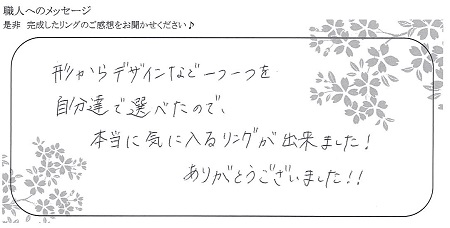 職人へのメッセージ
是非 完成したリングのご感想をお聞かせください♪
形からデザインなど一つ一つを
自分達で選べたので、
本当に気に入るリングが出来ました！
ありがとうございました！！